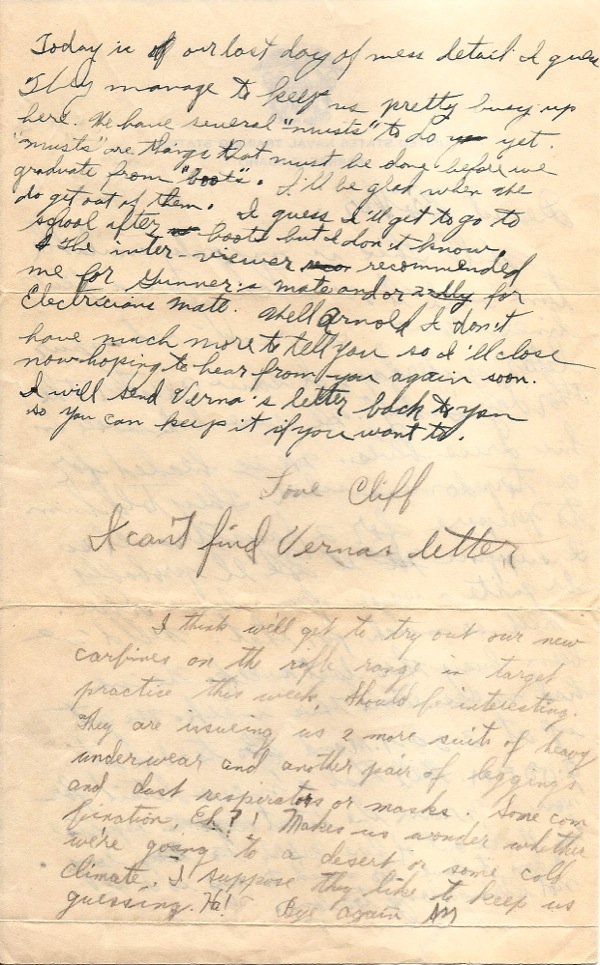 Today is of our last day of mess detail I guess
They manage to keep us pretty busy up
here. We have several "musts" to do yet.
"musts" are things that must be done before we
graduate from "boots". I'll be glad when we
do get out of them. I guess I'll get to go to
school after boots but I don't know,
The inter-viewer recommended
me for Gunner's mate and or for
Electricians mate. Well Arnold I don't
have much more to tell you so I'll close
now hoping to hear from you again soon.
I will send Verna's letter back to you
so you can keep it if you want to.
Love Cliff
I can't find Vernas letter
I think we'll get to try out our new
carbines on the rifle range in target
practice this week, Should be interesting.
They are issueing us 2 more suits of heavy
underwear and another pair of leggings
and dust respirators or masks. Some com
bination, Eh?! Makes us wonder whether
we're going to a desert or some cold
climate. I suppose they like to keep us
guessing. Ha! Bye again